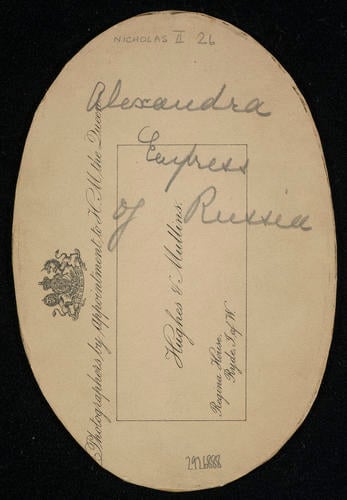 NICHOLAS II 26
Alexandra
Empress
of Russia
Photographers by Appointment to H.M. the Queen
Hughes & Mullins.
Regina House,
Ryde, I. of W.
2926888